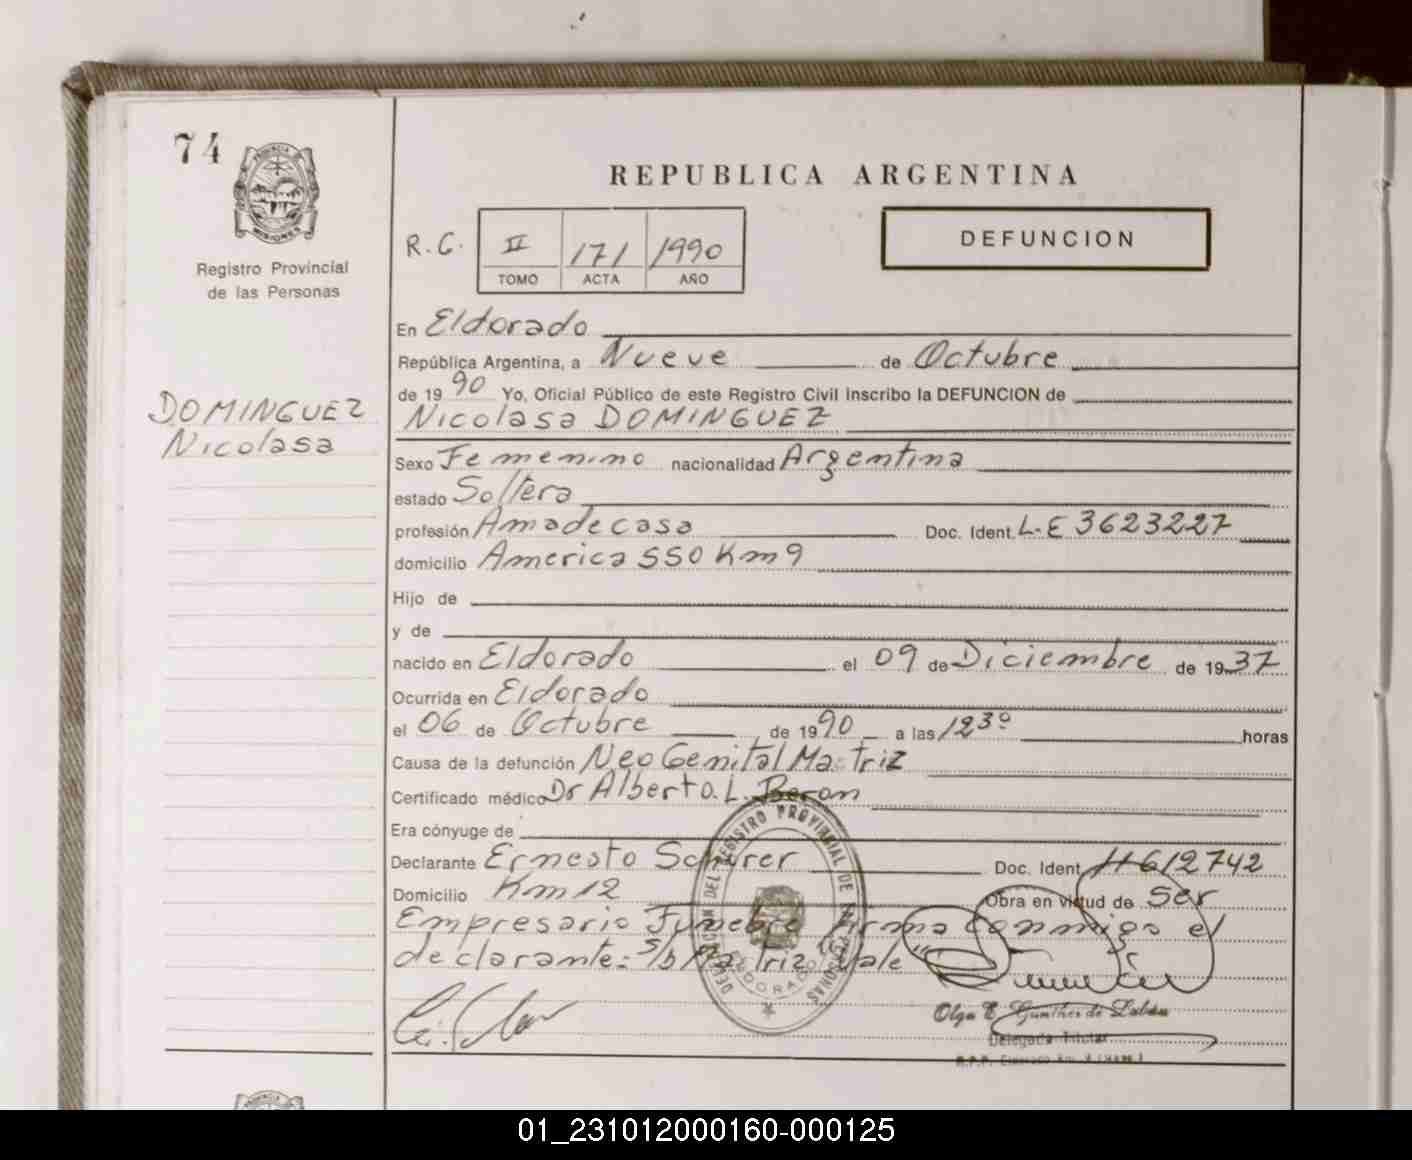 74
PROVINCIA
MISIONES
Registro Provincial
de las Personas
REPUBLICA ARGENTINA
R.C. II 171 1990
TOMO ACTA AÑO
DEFUNCION
En Eldorado
República Argentina, a Nueve de Octubre
de 1990 Yo, Oficial Público de este Registro Civil Inscribo la DEFUNCION de
DOMINGUEZ
Nicolasa
Nicolasa DOMINGUEZ
Sexo Femenino nacionalidad Argentina
estado Soltera
profesión Amadecasa Doc. Ident. L-E 3623227
domicilio America 550 Km 9
Hijo de
y de
nacido en Eldorado el 09 de Diciembre de 1937
Ocurrida en Eldorado
el 06 de Octubre de 1990 a las 1230 horas
Causa de la defunción Neo Genital Ma triz
Certificado médico Dr Alberto. L. Beron
Era cónyuge de
Declarante Ernesto Schürer Doc. Ident. 11612742
Domicilio Km 12 Obra en virtud de Ser
Empresario Funebre Firma conmigo el
declarante = s/b Ma triz "Vale"
DELEGACION DEL REGISTRO PROVINCIAL DE LAS PERSONAS
ELDORADO
Olga E. Gunther de Labán
Delegada Titular
R.P.P. Eldorado Km. 9 (Mnes.)
PROVINCIA
01_231012000160-000125